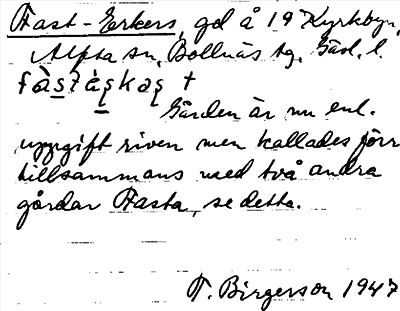 Fast-Eskers, gd å 19 Kyrkbyn,
Alfta sn, Bollnäs tg. Gävl. l.
fàstá̱şkəş †
Gården är nu enl.
uppgift riven men kallades förr
tillsammans med två andra
gårdar Fasta, se detta.
T. Birgerson 1947